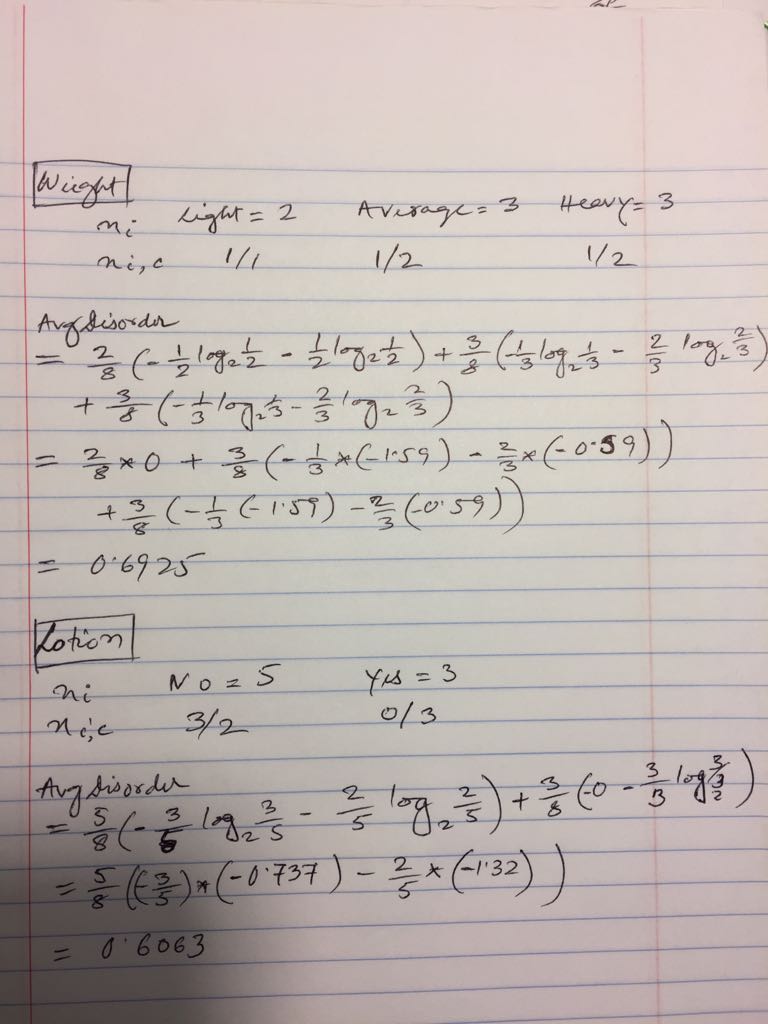 Weight
ni Light = 2 Average = 3 Heavy = 3
ni,c 1/1 1/2 1/2
Avg Disorder
= 2/8 (-1/2 log₂ 1/2 - 1/2 log₂ 1/2) + 3/8 (-1/3 log₂ 1/3 - 2/3 log₂ 2/3)
+ 3/8 (-1/3 log₂ 1/3 - 2/3 log₂ 2/3)
= 2/8 * 0 + 3/8 (-1/3 * (-1.59) - 2/3 * (-0.59))
+ 3/8 (-1/3 (-1.59) - 2/3 (-0.59))
= 0.6925
Lotion
ni No = 5 Yes = 3
ni,c 3/2 0/3
Avg Disorder
= 5/8 (-3/5 log₂ 3/5 - 2/5 log₂ 2/5) + 3/8 (-0 - 3/3 log₂ 3/3)
= 5/8 ((-3/5) * (-0.737) - 2/5 * (-1.32))
= 0.6063